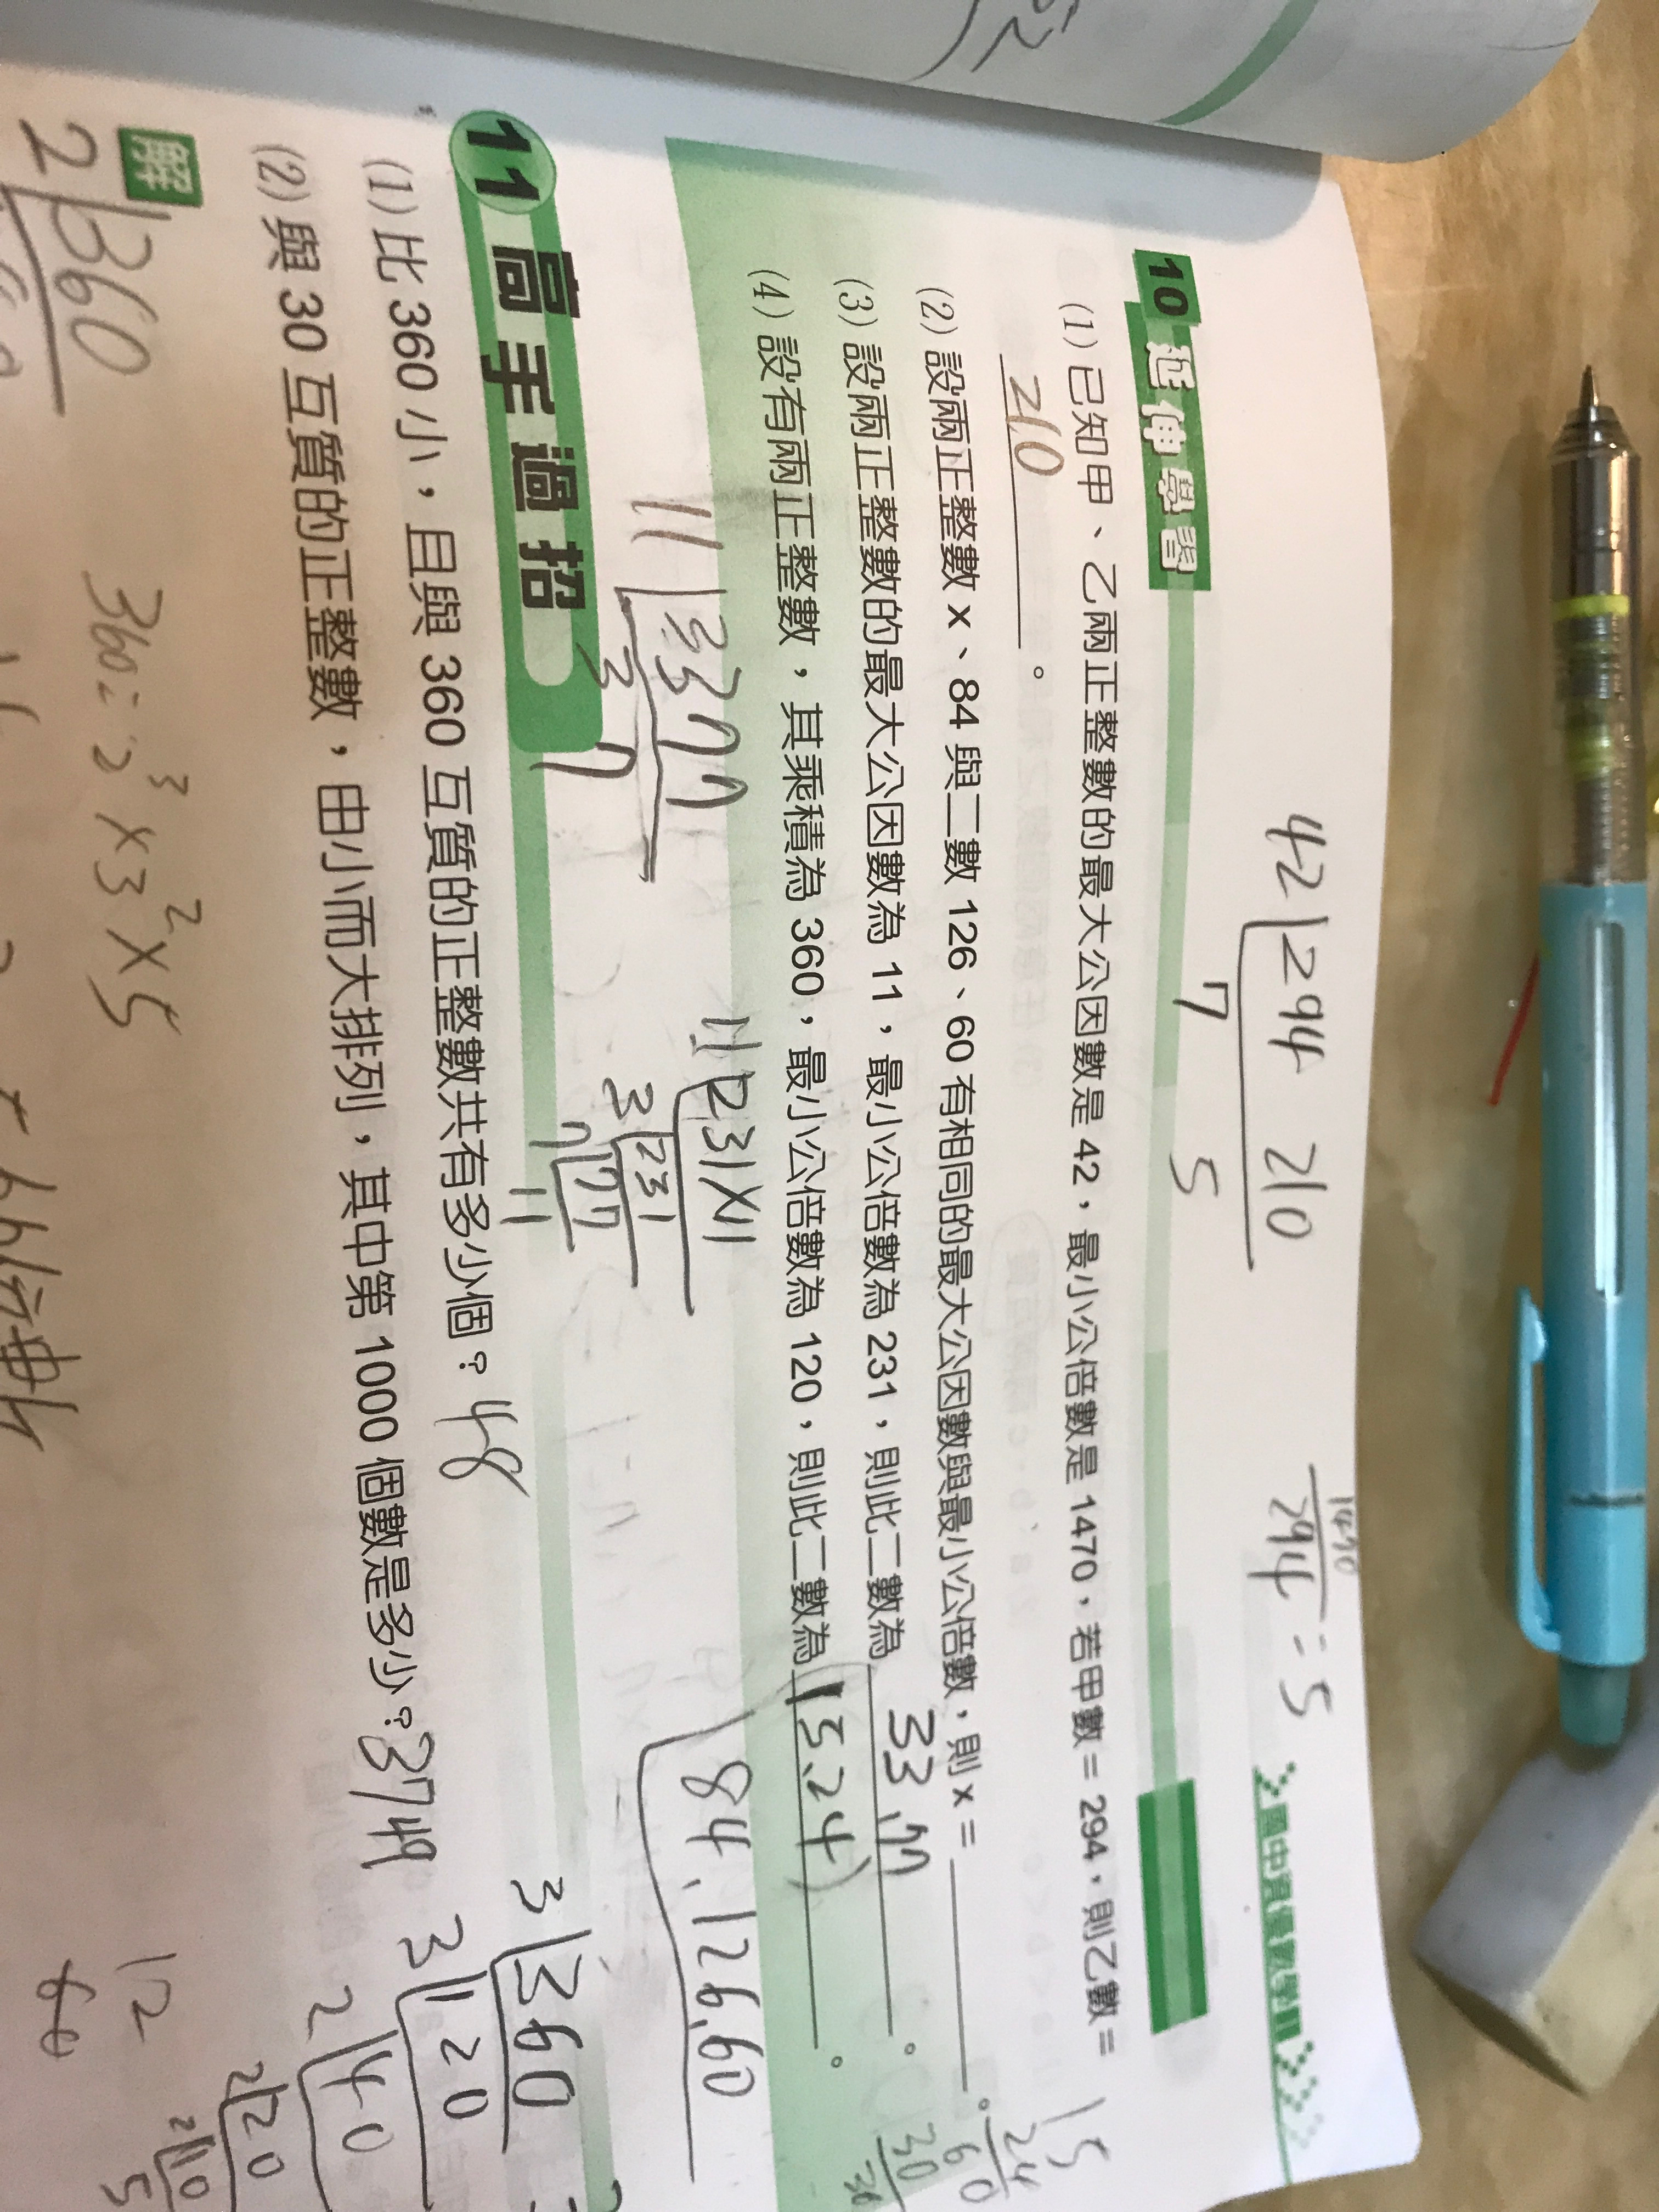 國中資優數學
42 294 210
7 5
1470
294 = 5
10 延伸學習
(1) 已知甲、乙兩正整數的最大公因數是 42，最小公倍數是 1470，若甲數 = 294，則乙數 =
210 。
(2) 設兩正整數 x、84 與二數 126、60 有相同的最大公因數與最小公倍數，則 x = 。
(3) 設兩正整數的最大公因數為 11，最小公倍數為 231，則此二數為 33,77 。
(4) 設有兩正整數，其乘積為 360，最小公倍數為 120，則此二數為 (15,24) 。
15
24
60
30
84,126,60
11 231×11
3 231
7 77
11
11 33 77
3 7
11 高手過招
(1) 比 360 小，且與 360 互質的正整數共有多少個？ 48
(2) 與 30 互質的正整數，由小而大排列，其中第 1000 個數是多少？ 3749
3 360
3 120
2 40
2 20
2 10
5
解
2 360
360 = 2³×3²×5
12